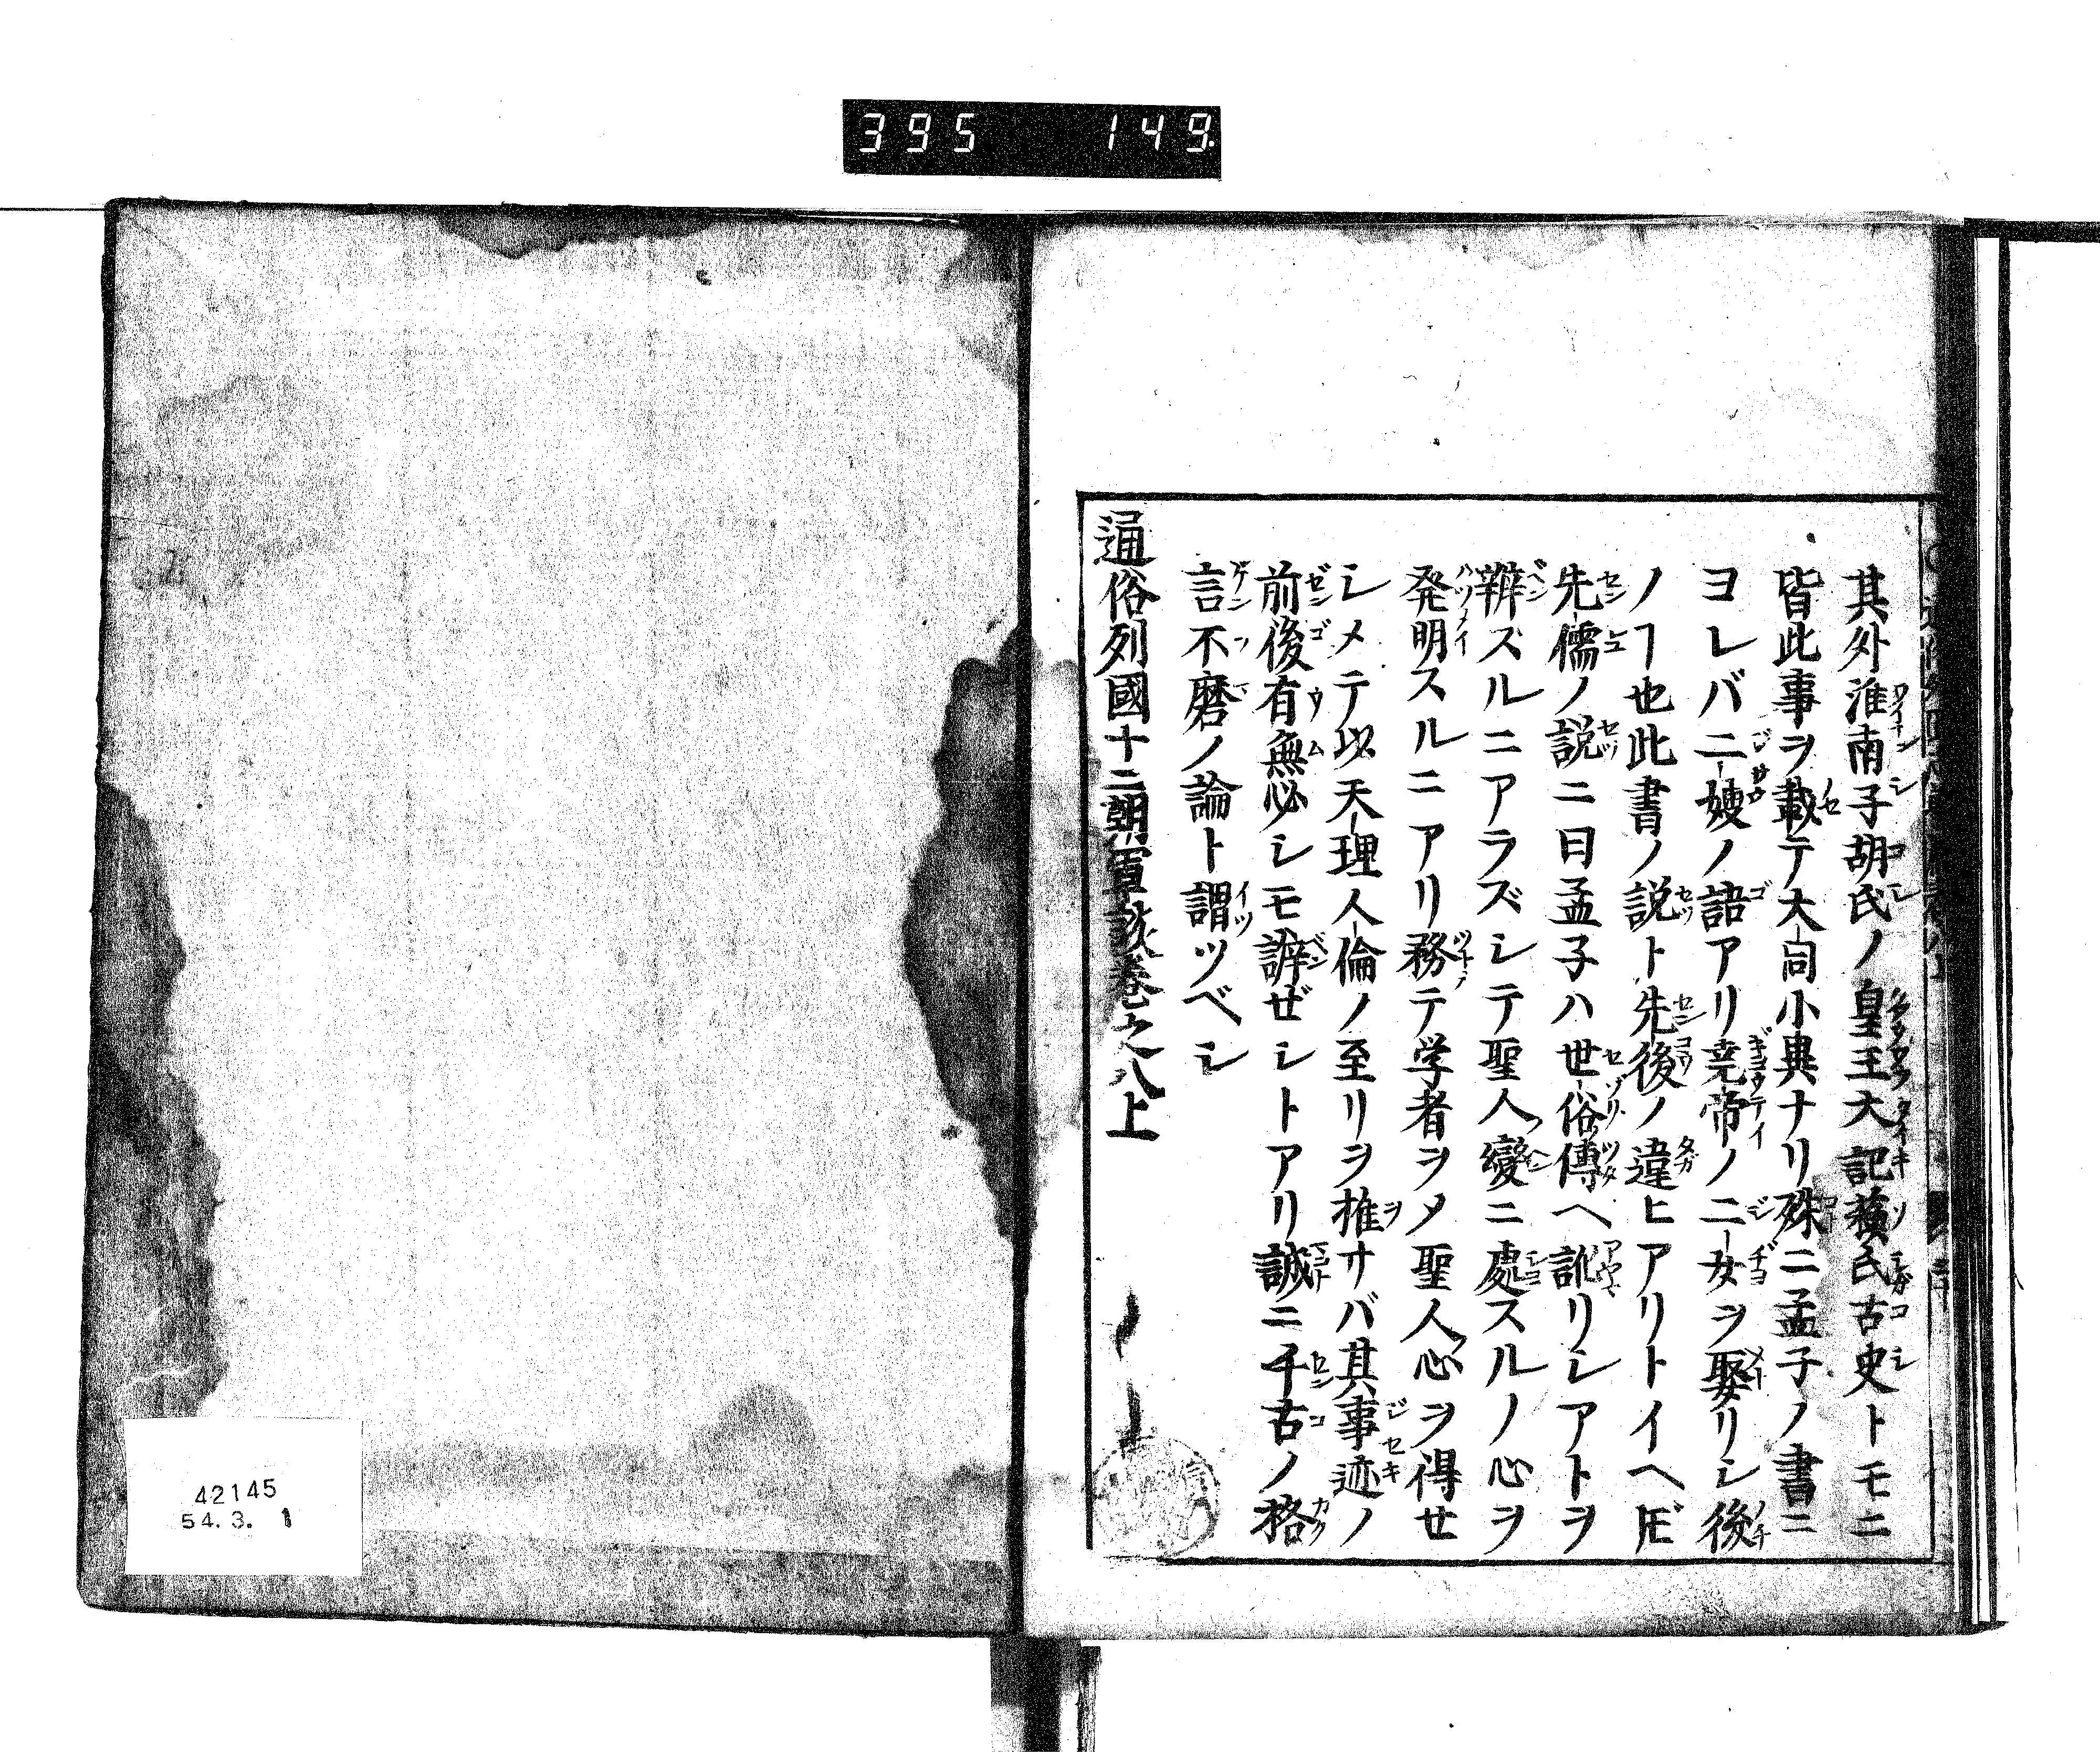 395 149
其外淮南子胡氏ノ皇王大記蘓氏古史トモニ
皆此事ヲ載テ大同小異ナリ殊ニ孟子ノ書ニ
ヨレバ二嫂ノ語アリ堯帝ノ二女ヲ娶リシ後
ノヿ也此書ノ説ト先後ノ違ヒアリトイヘ𪜈
先儒ノ説ニ曰孟子ハ世俗傳ヘ訛リシアトヲ
辨ズルニアラズシテ聖人變ニ處スルノ心ヲ
発明スルニアリ務テ学者ヲメ聖人心ヲ得せ
シメテ以天理人倫ノ至リヲ推サバ其事迹ノ
前後有無必シモ辨ぜシトアリ誠ニ千古ノ格
言不磨ノ論ト謂ツベシ
通俗列國十二朝軍談巻之八上
42145
54.3. 1